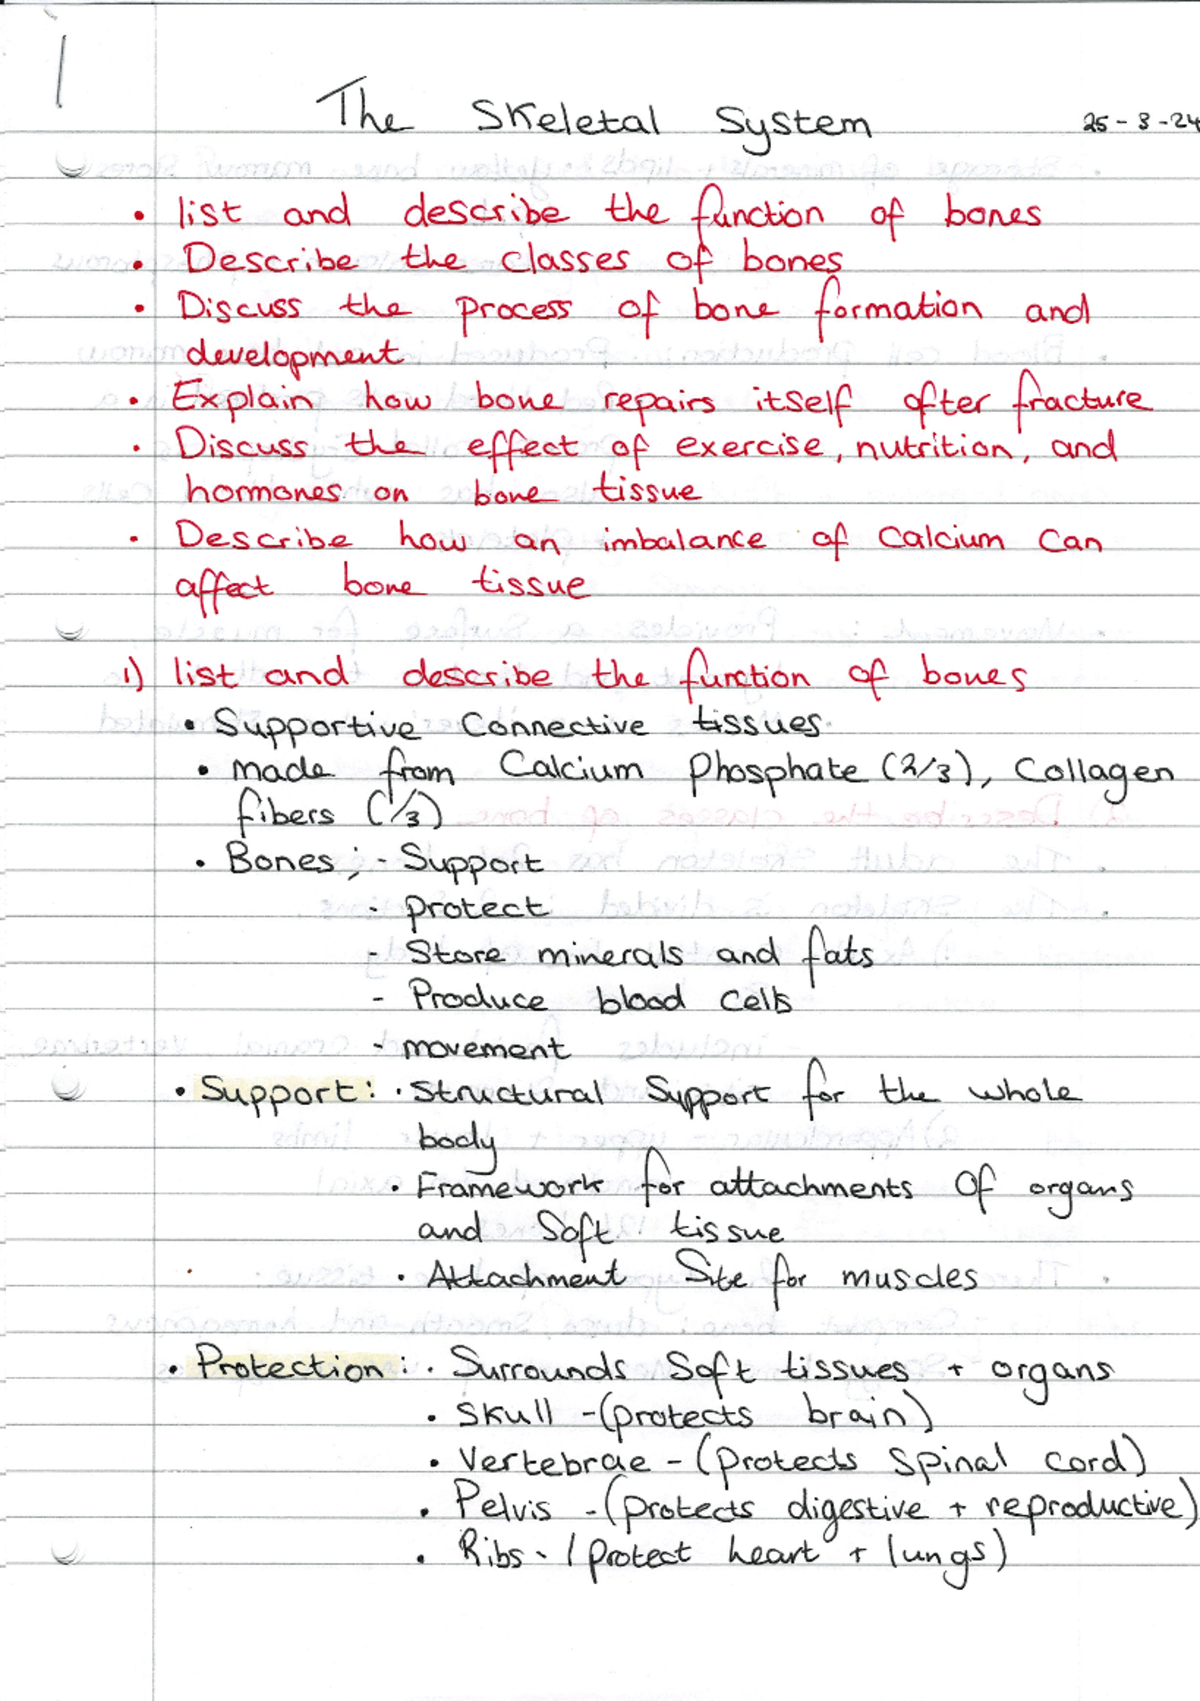 1
The Skeletal System 25-3-24
• list and describe the function of bones
• Describe the classes of bones
• Discuss the process of bone formation and
development
• Explain how bone repairs itself after fracture
• Discuss the effect of exercise, nutrition, and
hormones on bone tissue
• Describe how an imbalance of Calcium Can
affect bone tissue
1) list and describe the function of bones
• Supportive Connective tissues
• made from Calcium Phosphate (2/3), Collagen
fibers (1/3)
• Bones; - Support
- protect
- Store minerals and fats
- Produce blood cells
- movement
• Support: • Structural Support for the whole
body
• Framework for attachments of organs
and Soft tissue
• Attachment Site for muscles
• Protection: • Surrounds Soft tissues + organs
• Skull - (protects brain)
• Vertebrae - (protects Spinal cord)
• Pelvis - (protects digestive + reproductive)
• Ribs - (protect heart + lungs)